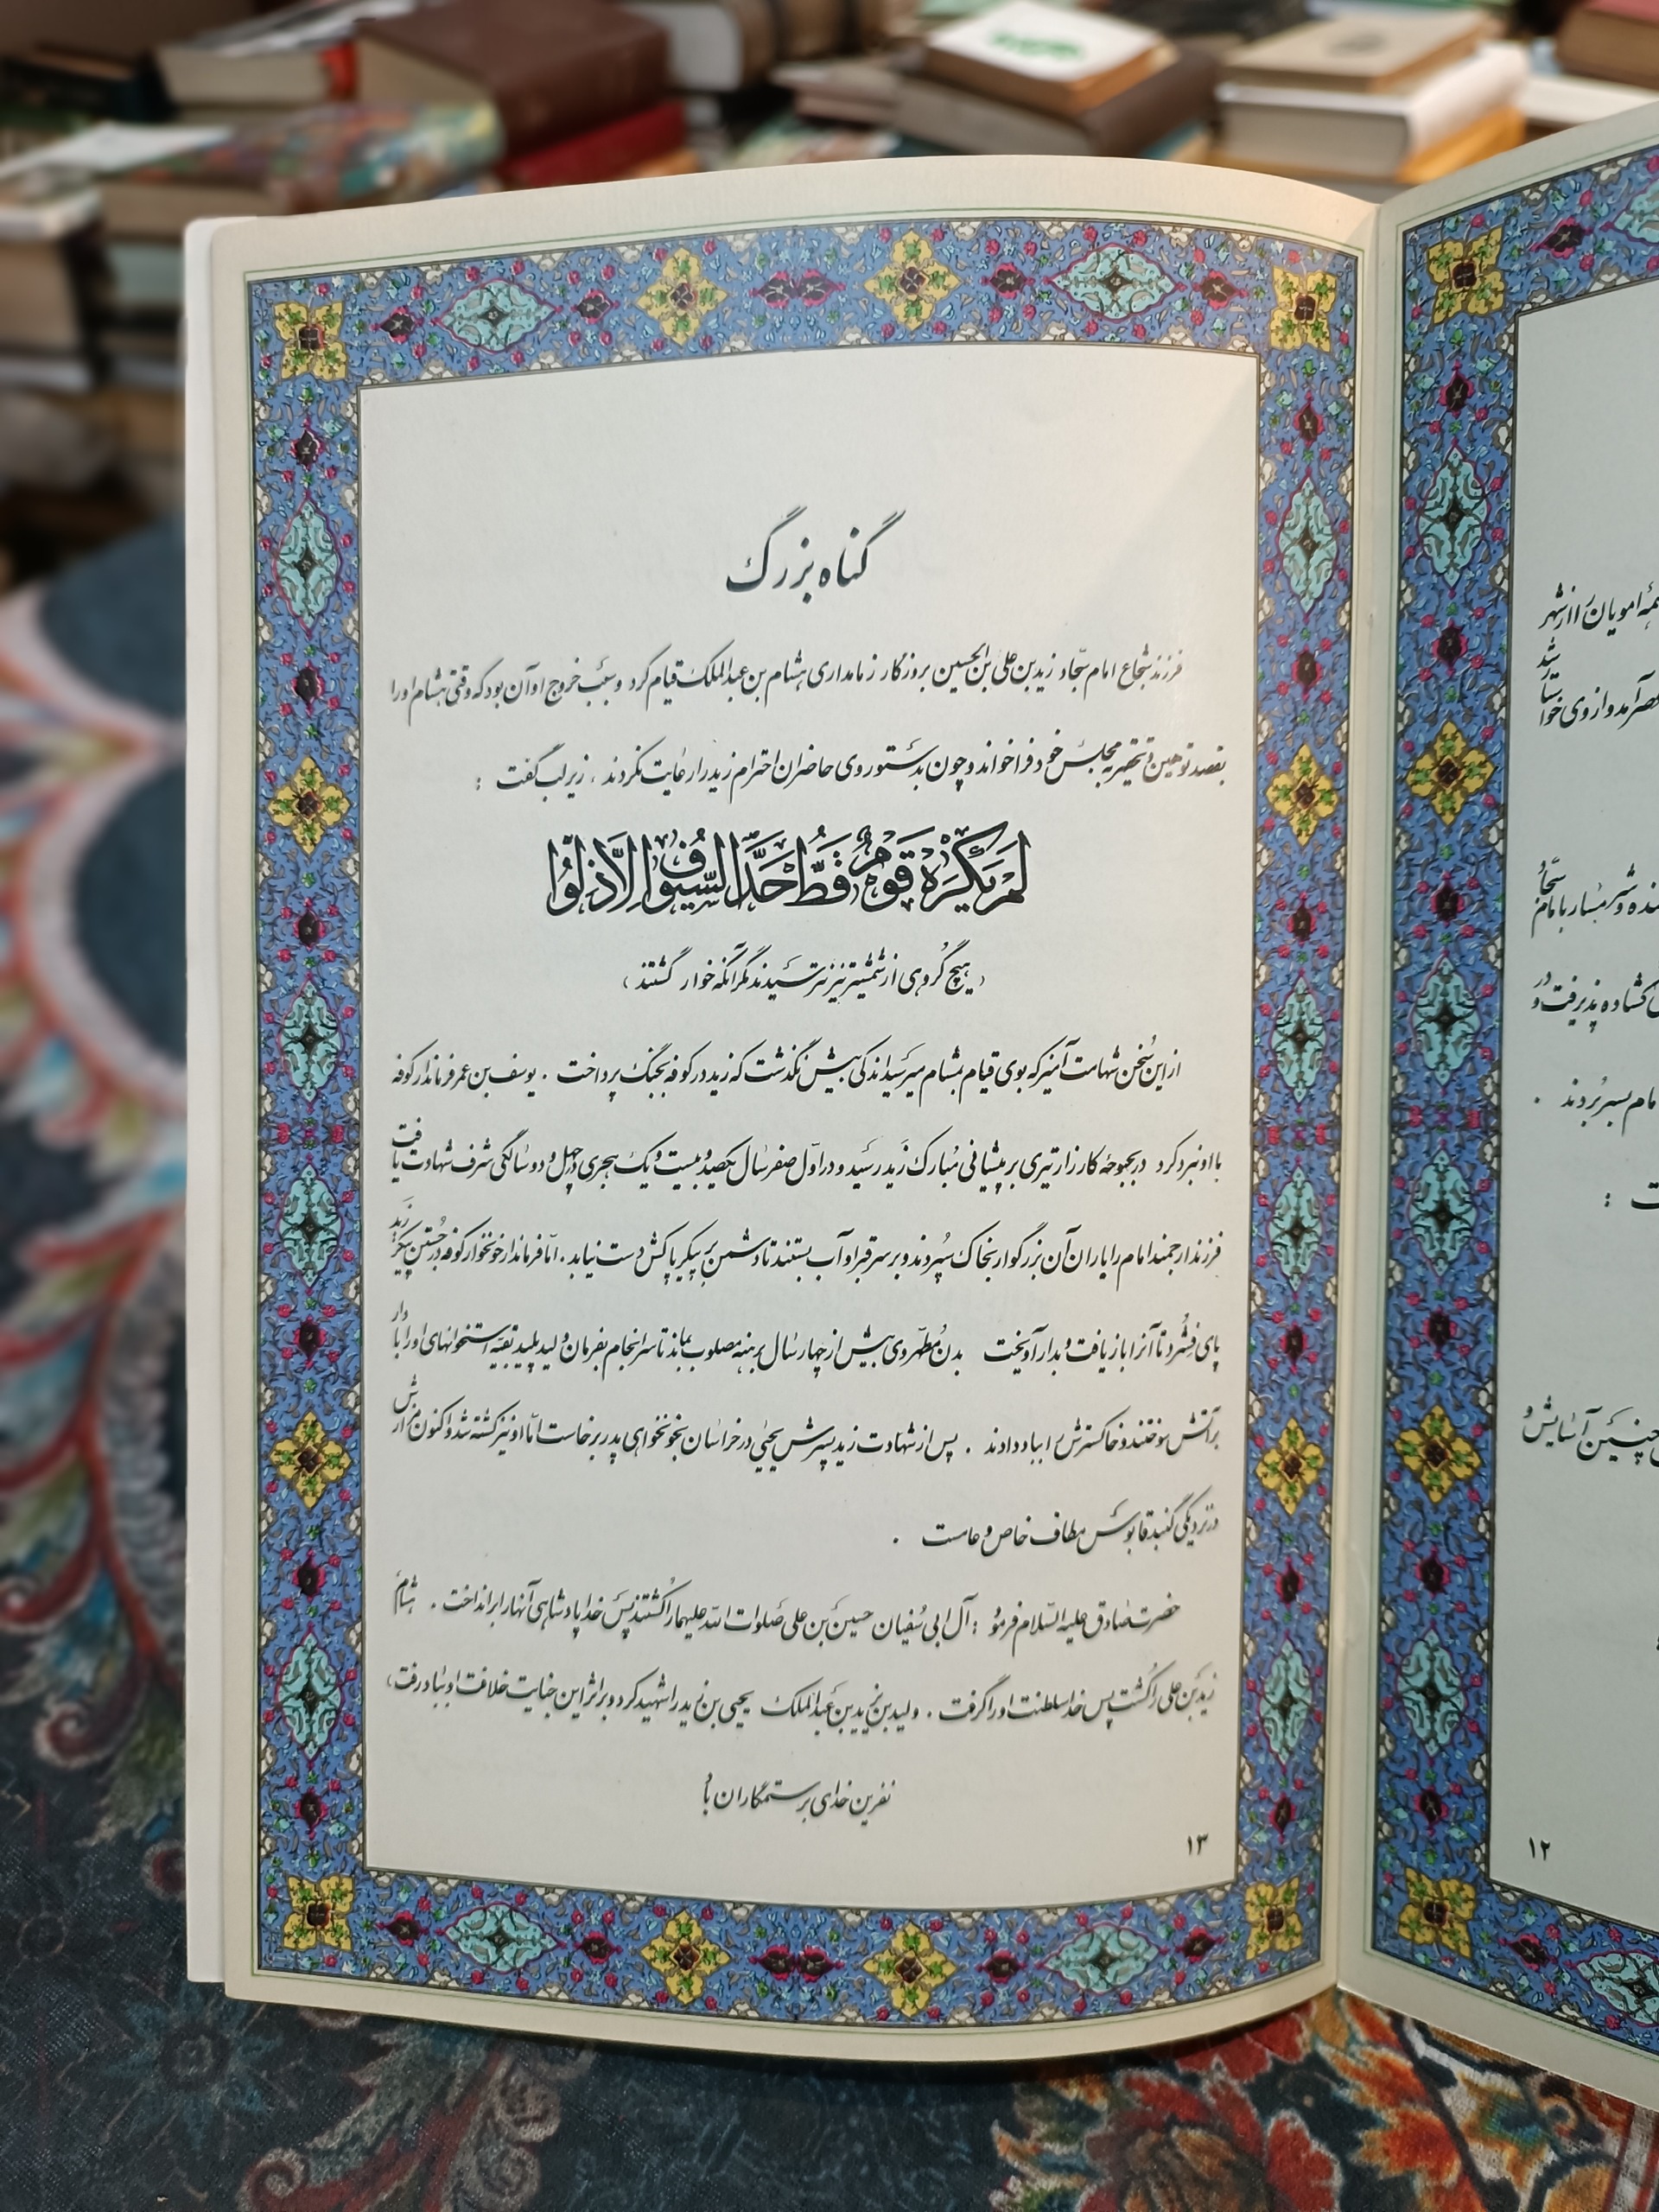 گناه بزرگ
فرزند شجاع امام سجّاد زید بن علی بن الحسین بروزگار زمامداری هشام بن عبدالملک قیام کرد و سبب خروج او آن بود که وقتی هشام او را
بقصد توهین و تحقیر به مجلس خود فراخواند و چون بدستور وی حاضران احترام زید را رعایت نکردند . زیر لب گفت :
لَمْ يَكْرَهْ قَوْمٌ قَطُّ حَدَّ السُّيُوفِ إِلَّا ذَلُّوا
( هیچ گروهی از شمشیر تیز نترسیدند مگر آنکه خوار گشتند )
از این سخن شهامت آمیز که بوی قیام بمشام میرسید اندکی بیش نگذشت که زید در کوفه بجنگ پرداخت . یوسف بن عمر فرماندار کوفه
با او نبرد کرد در بحبوحه کارزار تیری بر پیشانی مبارک زید رسید و در اوّل صفر سال یکصد و بیست و یک هجری در چهل و دو سالگی شرف شهادت یافت
فرزند ارجمند امام را یاران آن بزرگوار بخاک سپردند و بر سر قبر او آب بستند تا دشمن بر پیکر پاکش دست نیابد . امّا فرماندار خونخوار کوفه در جستن پیکر زید
پای فشرد تا آنرا بازیافت و بدار آویخت بدن مطهر وی بیش از چهار سال برهنه مصلوب بماند تا سرانجام بفرمان ولید پلید بقیه استخوانهای او را با دار
برآتش سوختند و خاکسترش را بباد دادند . پس از شهادت زید پسرش یحیی در خراسان بخونخواهی پدر برخاست امّا او نیز کشته شد و اکنون مزارش
در نزدیکی گنبد قابوس مطاف خاص و عامست .
حضرت صادق علیه السّلام فرمود : آل ابی سفیان حسین بن علی صلوات الله علیهما را کشتند پس خدا پادشاهی آنها را برانداخت . هشام
زید بن علی را کشت پس خدا سلطنت او را گرفت . ولید بن یزید بن عبدالملک یحیی بن زید را شهید کرد و بر اثر این جنایت خلافت او بباد رفت ،
نفرین خدای بر ستمگاران باد
۱۳
امویان را از شهر
شد
وازوی خواستار
شرمسار با امام سجّاد
گشاده پذیرفت و در
بسر بُردند .
:
چنین آسایش و
۱۲